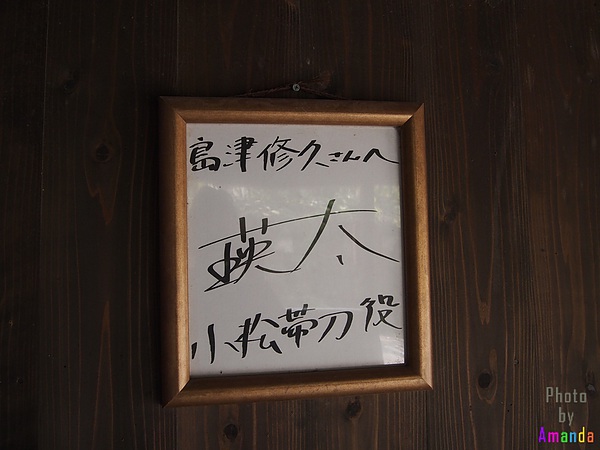 島津修久さんへ
瑛太
小松帯刀役
Photo
by
Amanda